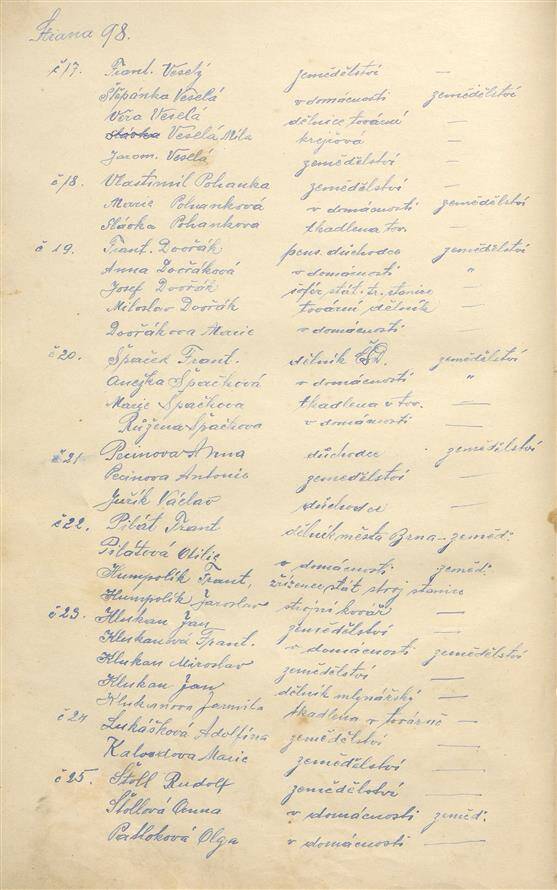 Strana 98.
č 17. Frant. Veselý zemědělství —
Štěpánka Veselá v domácnosti zemědělství
Věra Veselá dělnice tovární —
Slávka Veselá Mila krejčová —
Jarom. Veselá zemědělství —
č 18. Vlastimil Pohanka zemědělství —
Marie Pohanková v domácnosti zemědělství
Slávka Pohankova tkadlena tov. —
č 19. Frant. Dvořák pens. důchodce zemědělství
Anna Dvořáková v domácnosti "
Josef Dvořák šofér stát. tr. stanice —
Miloslav Dvořák tovární dělník —
Dvořákova Marie v domácnosti —
č 20. Špaček Frant. dělník ČSD. zemědělství
Anežka Špačková v domácnosti "
Marie Špačkova tkadlena v tov. —
Růžena Špačkova v domácnosti —
č 21 Pecinova Anna důchodce zemědělství
Pecinova Antonie zemědělství —
Juřík Václav důchodce —
č 22. Pilát Frant dělník města Brna – zeměd.
Pilátová Otilie v domácnosti zeměd.
Humpolík Frant. zřízenec stát stroj stanice
Humpolík Jaroslav strojní kovář —
č 23. Klukan Jan zemědělství —
Klukanová Frant. v domácnosti zemědělství
Klukan Miroslav zemědělství —
Klukan Jan dělník mlynářský —
Klukanova Jarmila tkadlena v továrně —
č 24 Lukášková Adolfína zemědělství —
Marie zemědělství —
č 25. Štoll Rudolf zemědělství —
Štollová Anna v domácnosti zeměd.
Patloková Olga v domácnosti —